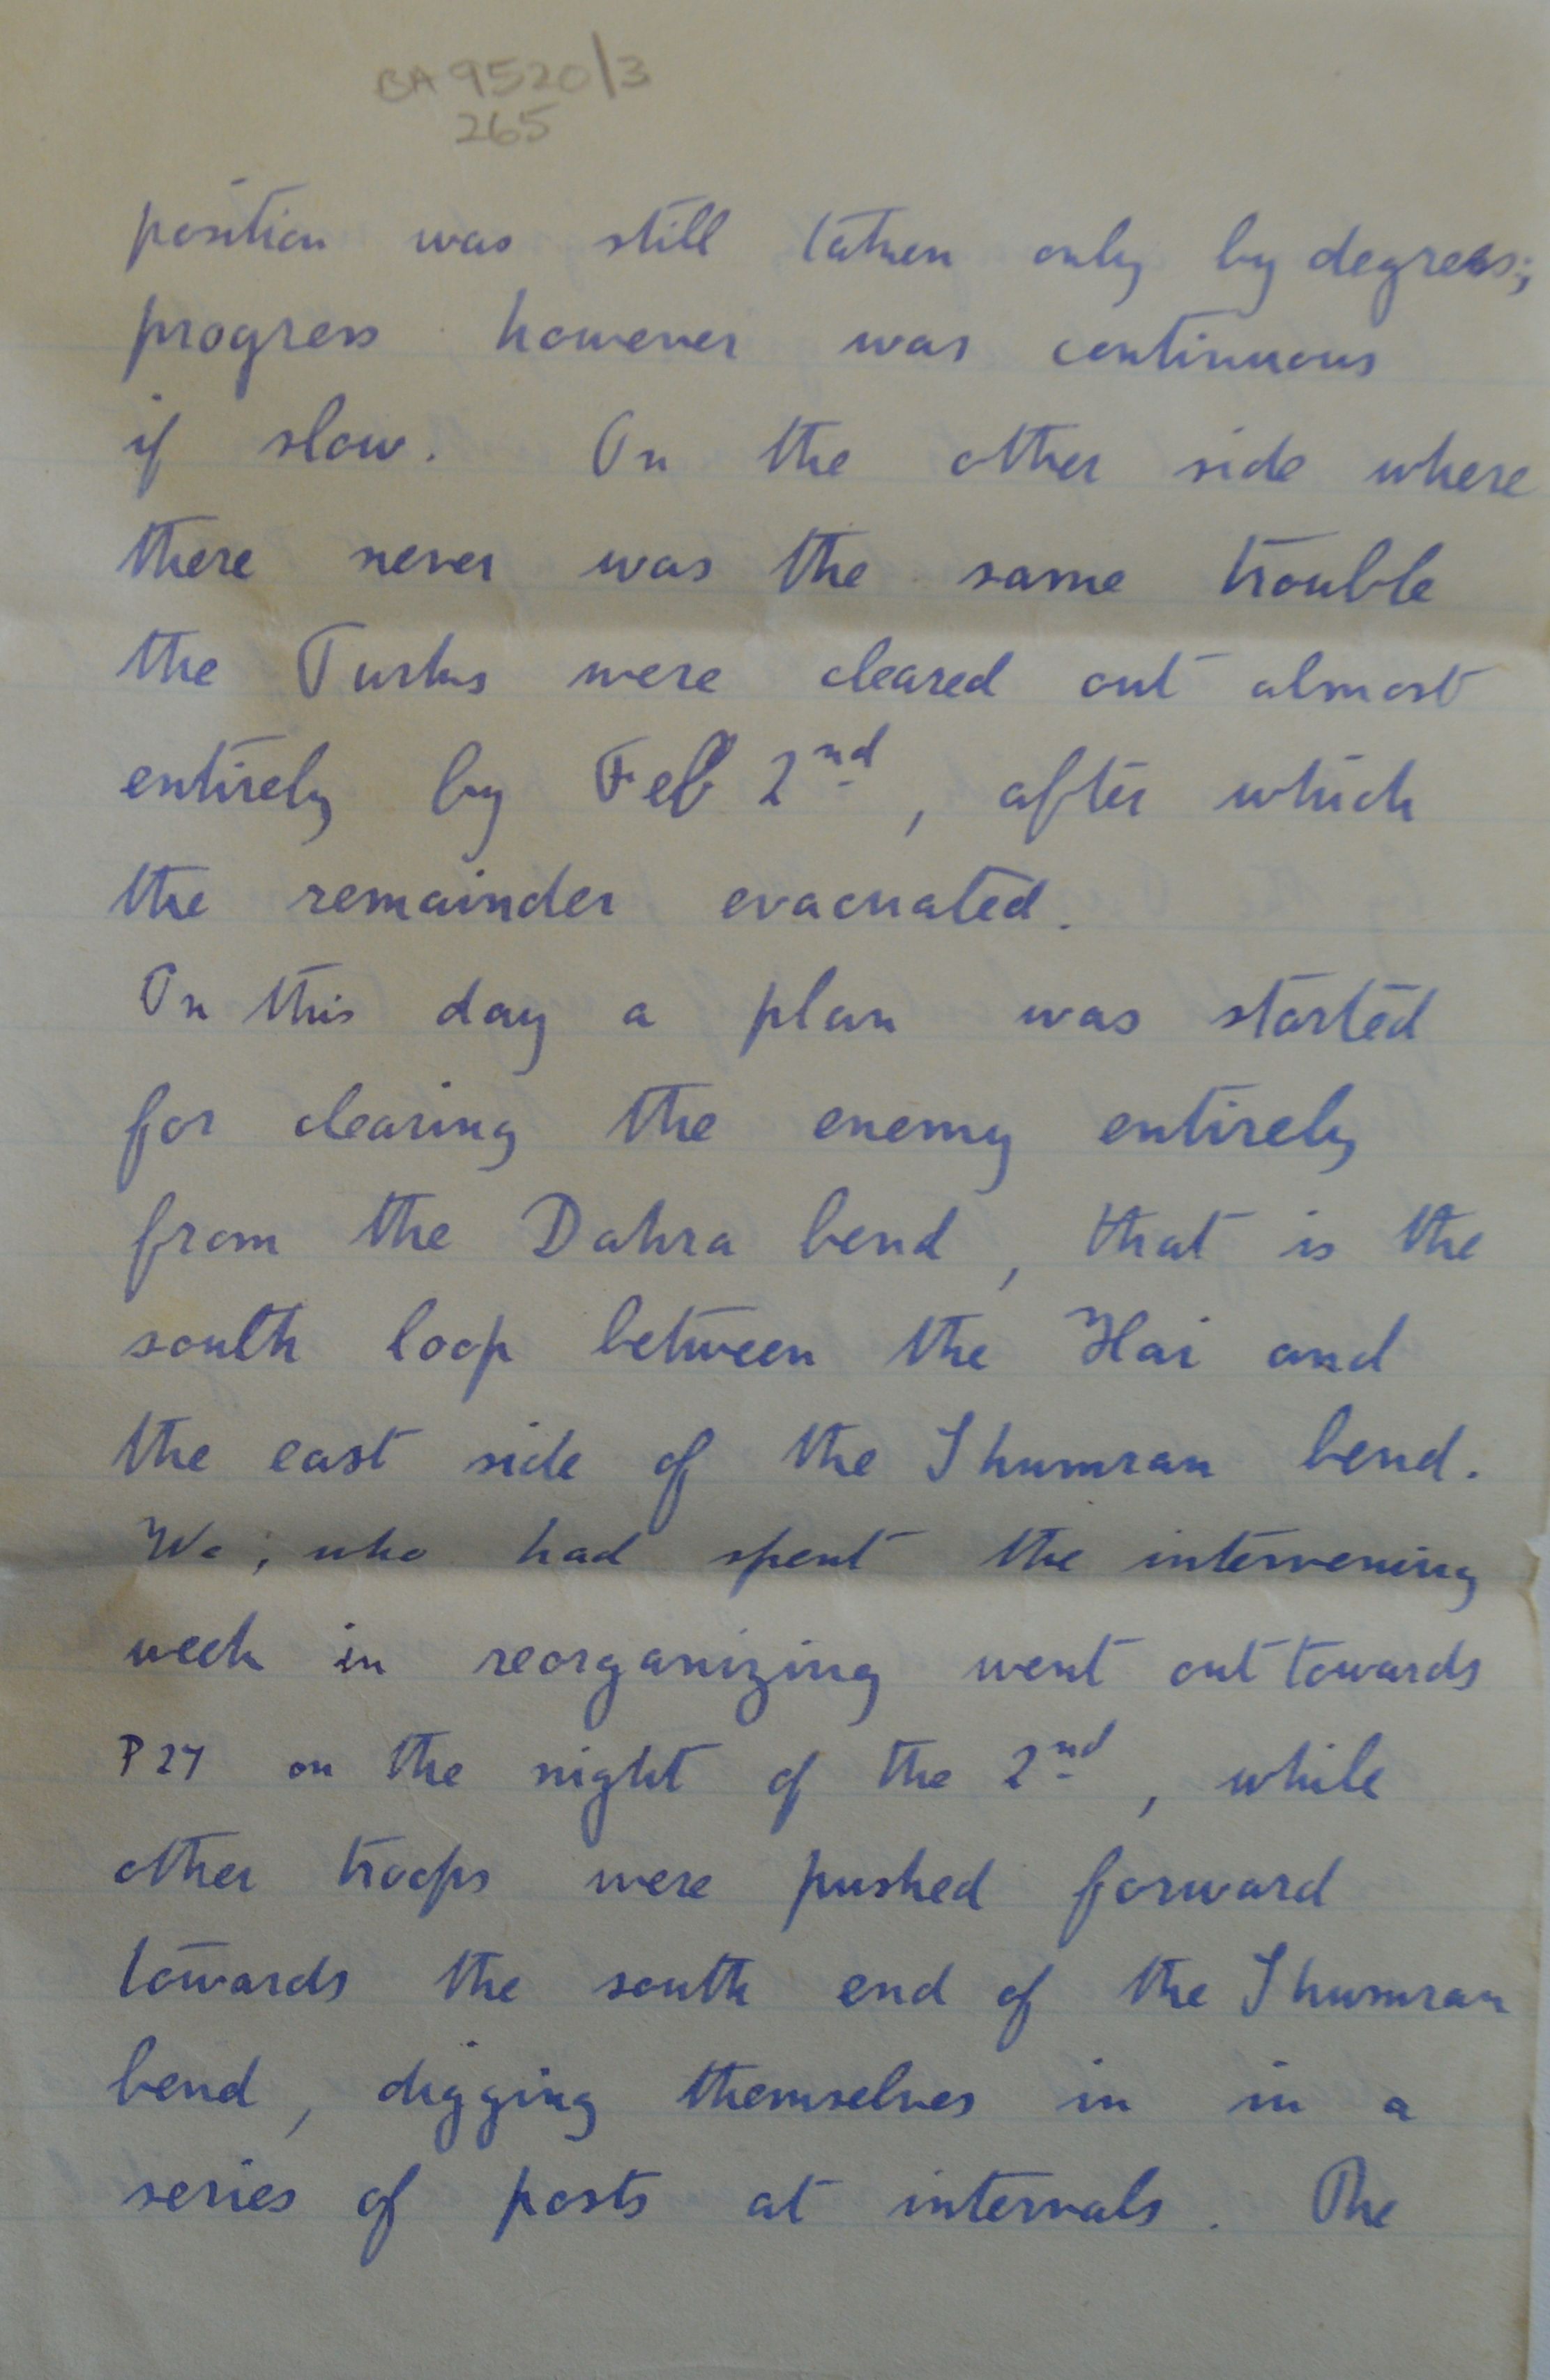 BA 9520/3
265
position was still taken only by degrees;
progress however was continuous
if slow. On the other side where
there never was the same trouble
the Turks were cleared out almost
entirely by Feb 2nd, after which
the remainder evacuated.
On this day a plan was started
for clearing the enemy entirely
from the Dahra bend, that is the
south loop between the Hai and
the east side of the Shumran bend.
We, who had spent the intervening
week in reorganizing went out towards
P27 on the night of the 2nd, while
other troops were pushed forward
towards the south end of the Shumran
bend, digging themselves in in a
series of posts at intervals. The